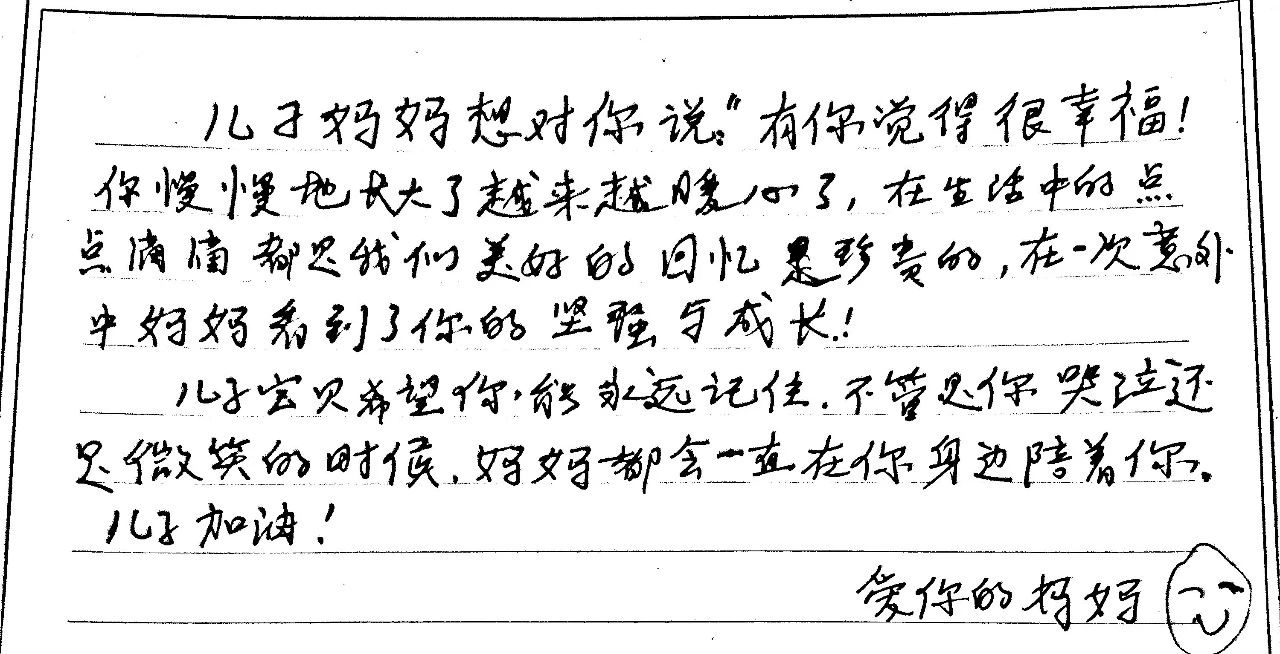 儿子妈妈想对你说:"有你觉得很幸福!
你慢慢地长大了越来越暖心了,在生活中的点
点滴滴都是我们美好的回忆是珍贵的,在一次意外
中妈妈看到了你的坚强与成长!
儿子宝贝希望你能永远记住.不管是你哭泣还
是微笑的时候.妈妈都会一直在你身边陪着你。
儿子加油!
爱你的妈妈